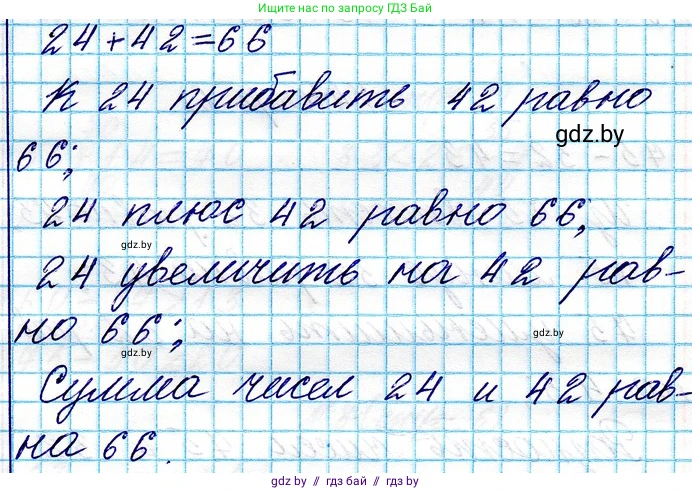 Ищите нас по запросу ГДЗ Бай
24+42=66
К 24 прибавить 42 равно
gdz.by
66;
24 плюс 42 равно 66;
gdz.by
24 увеличить на 42 рав-
но 66;
gdz.by
gdz.by
Сумма чисел 24 и 42 рав-
на 66.
gdz.by // гдз бай // гдз by